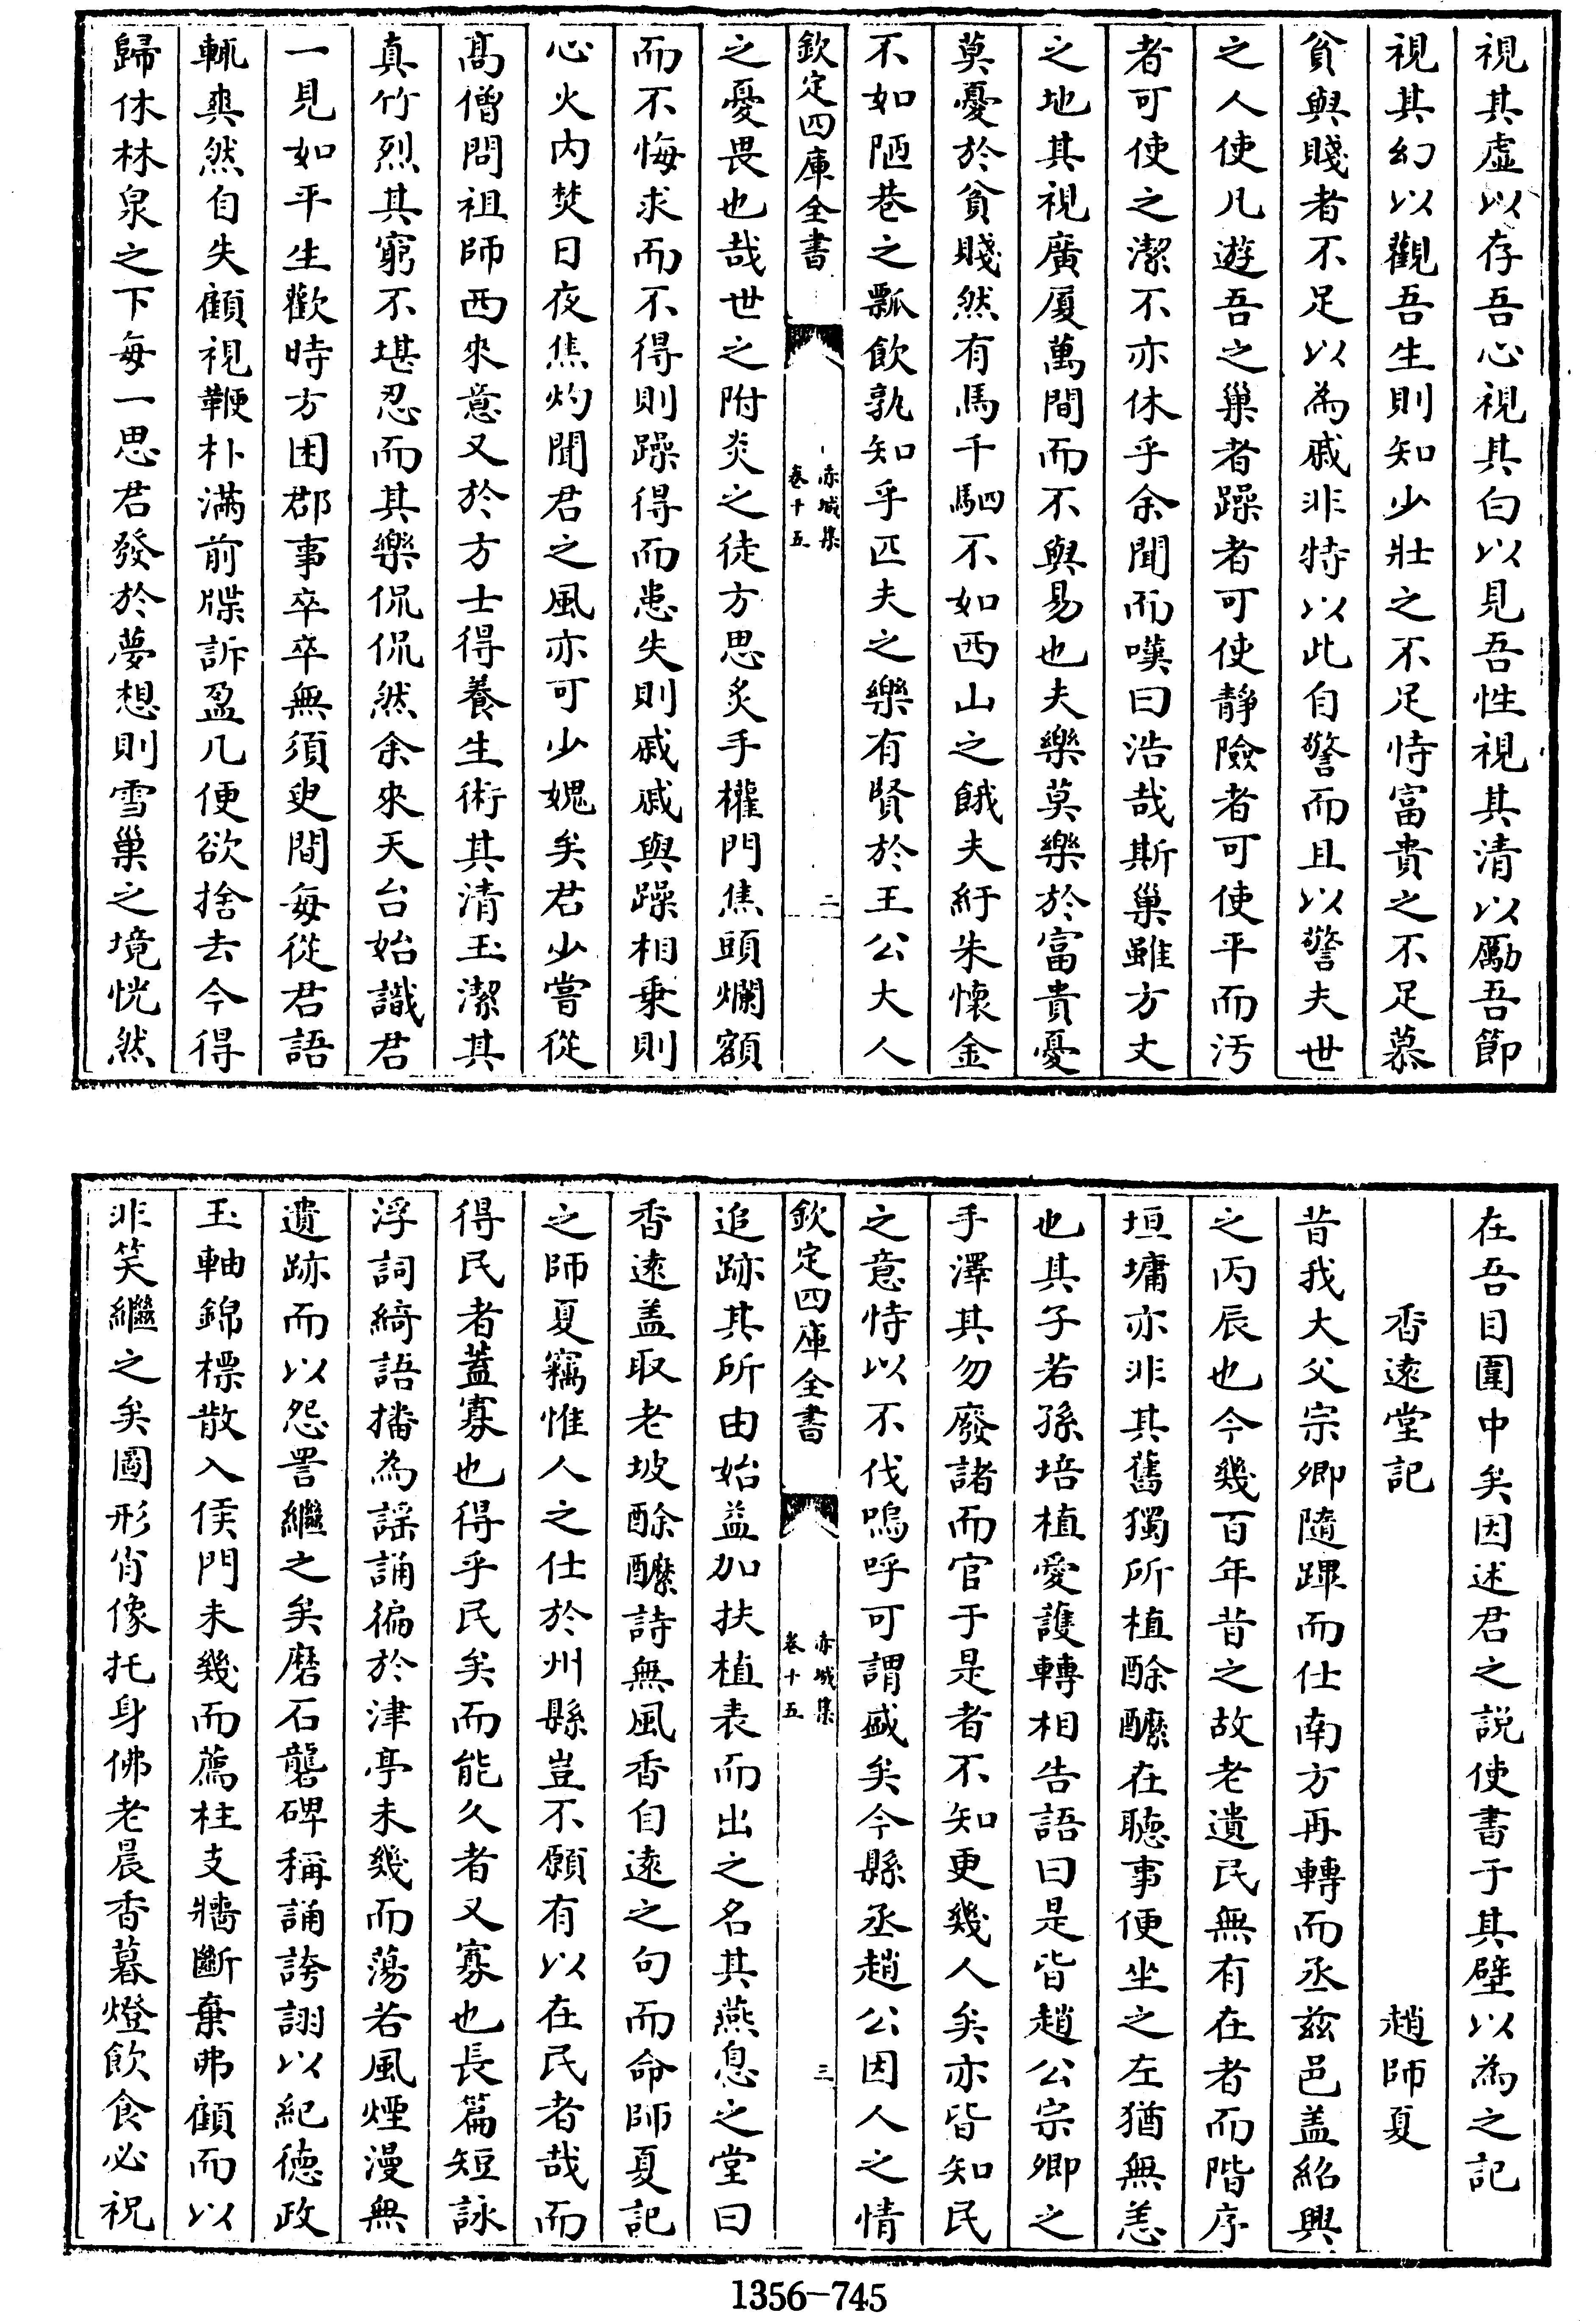 視其虛以存吾心視其白以見吾性視其清以厲吾節
視其幻以觀吾生則知少壯之不足恃富貴之不足慕
貧與賤者不足以為戚非特以此自警而且以警夫世
之人使凡遊吾之巢者躁者可使靜險者可使平而汚
者可使之潔不亦休乎余聞而嘆曰浩哉斯巢雖方丈
之地其視廣厦萬間而不與易也夫樂莫樂於富貴憂
莫憂於貧賤然有馬千駟不如西山之餓夫紆朱懷金
不如陋巷之瓢飲孰知乎匹夫之樂有賢於王公大人
欽定四庫全書
赤城集
卷十五
二
之憂畏也哉世之附炎之徒方思炙手權門焦頭爛額
而不悔求而不得則躁得而患失則戚戚與躁相乗則
心火内焚日夜焦灼聞君之風亦可少媿矣君少嘗從
髙僧問祖師西來意又於方士得養生術其清玉潔其
真竹烈其窮不堪忍而其樂侃侃然余來天台始識君
一見如平生歡時方困郡事卒卒無須臾間每從君語
輒爽然自失顧視鞭朴滿前牒訴盈几便欲捨去今得
歸休林泉之下每一思君發於夢想則雪巢之境恍然
在吾目圍中矣因述君之説使書于其壁以為之記
香逺堂記
趙師夏
昔我大父宗卿隨蹕而仕南方再轉而丞兹邑盖紹興
之丙辰也今幾百年昔之故老遺民無有在者而階序
垣墉亦非其舊獨所植酴醿在聽事便坐之左猶無恙
也其子若孫培植愛護轉相告語曰是皆趙公宗卿之
手澤其勿廢諸而官于是者不知更幾人矣亦皆知民
之意恃以不伐嗚呼可謂盛矣今縣丞趙公因人之情
欽定四庫全書
赤城集
卷十五
三
追跡其所由始益加扶植表而出之名其燕息之堂曰
香逺盖取老坡酴醿詩無風香自逺之句而命師夏記
之師夏竊惟人之仕於州縣豈不願有以在民者哉而
得民者蓋寡也得乎民矣而能久者又寡也長篇短詠
浮詞綺語播為謡誦徧於津亭未幾而蕩若風煙漫無
遺跡而以怨詈繼之矣磨石礱碑稱誦誇詡以紀徳政
玉軸錦標散入侯門未幾而薦柱支牆斷棄弗顧而以
非笑繼之矣圖形肖像托身佛老晨香暮燈飲食必祝
1356-745